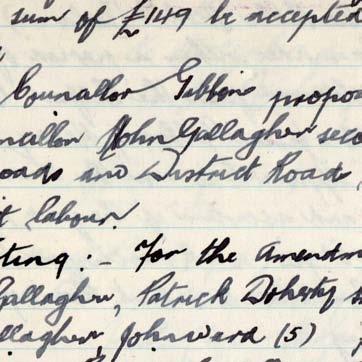 sum of £149 be accepted
Councillor Gibbons propo
ncillor John Gallagher seco
oads and District Roads
t labour.
ting:- For the Amendm
Gallagher, Patrick Doherty
allagher, John Ward (5)